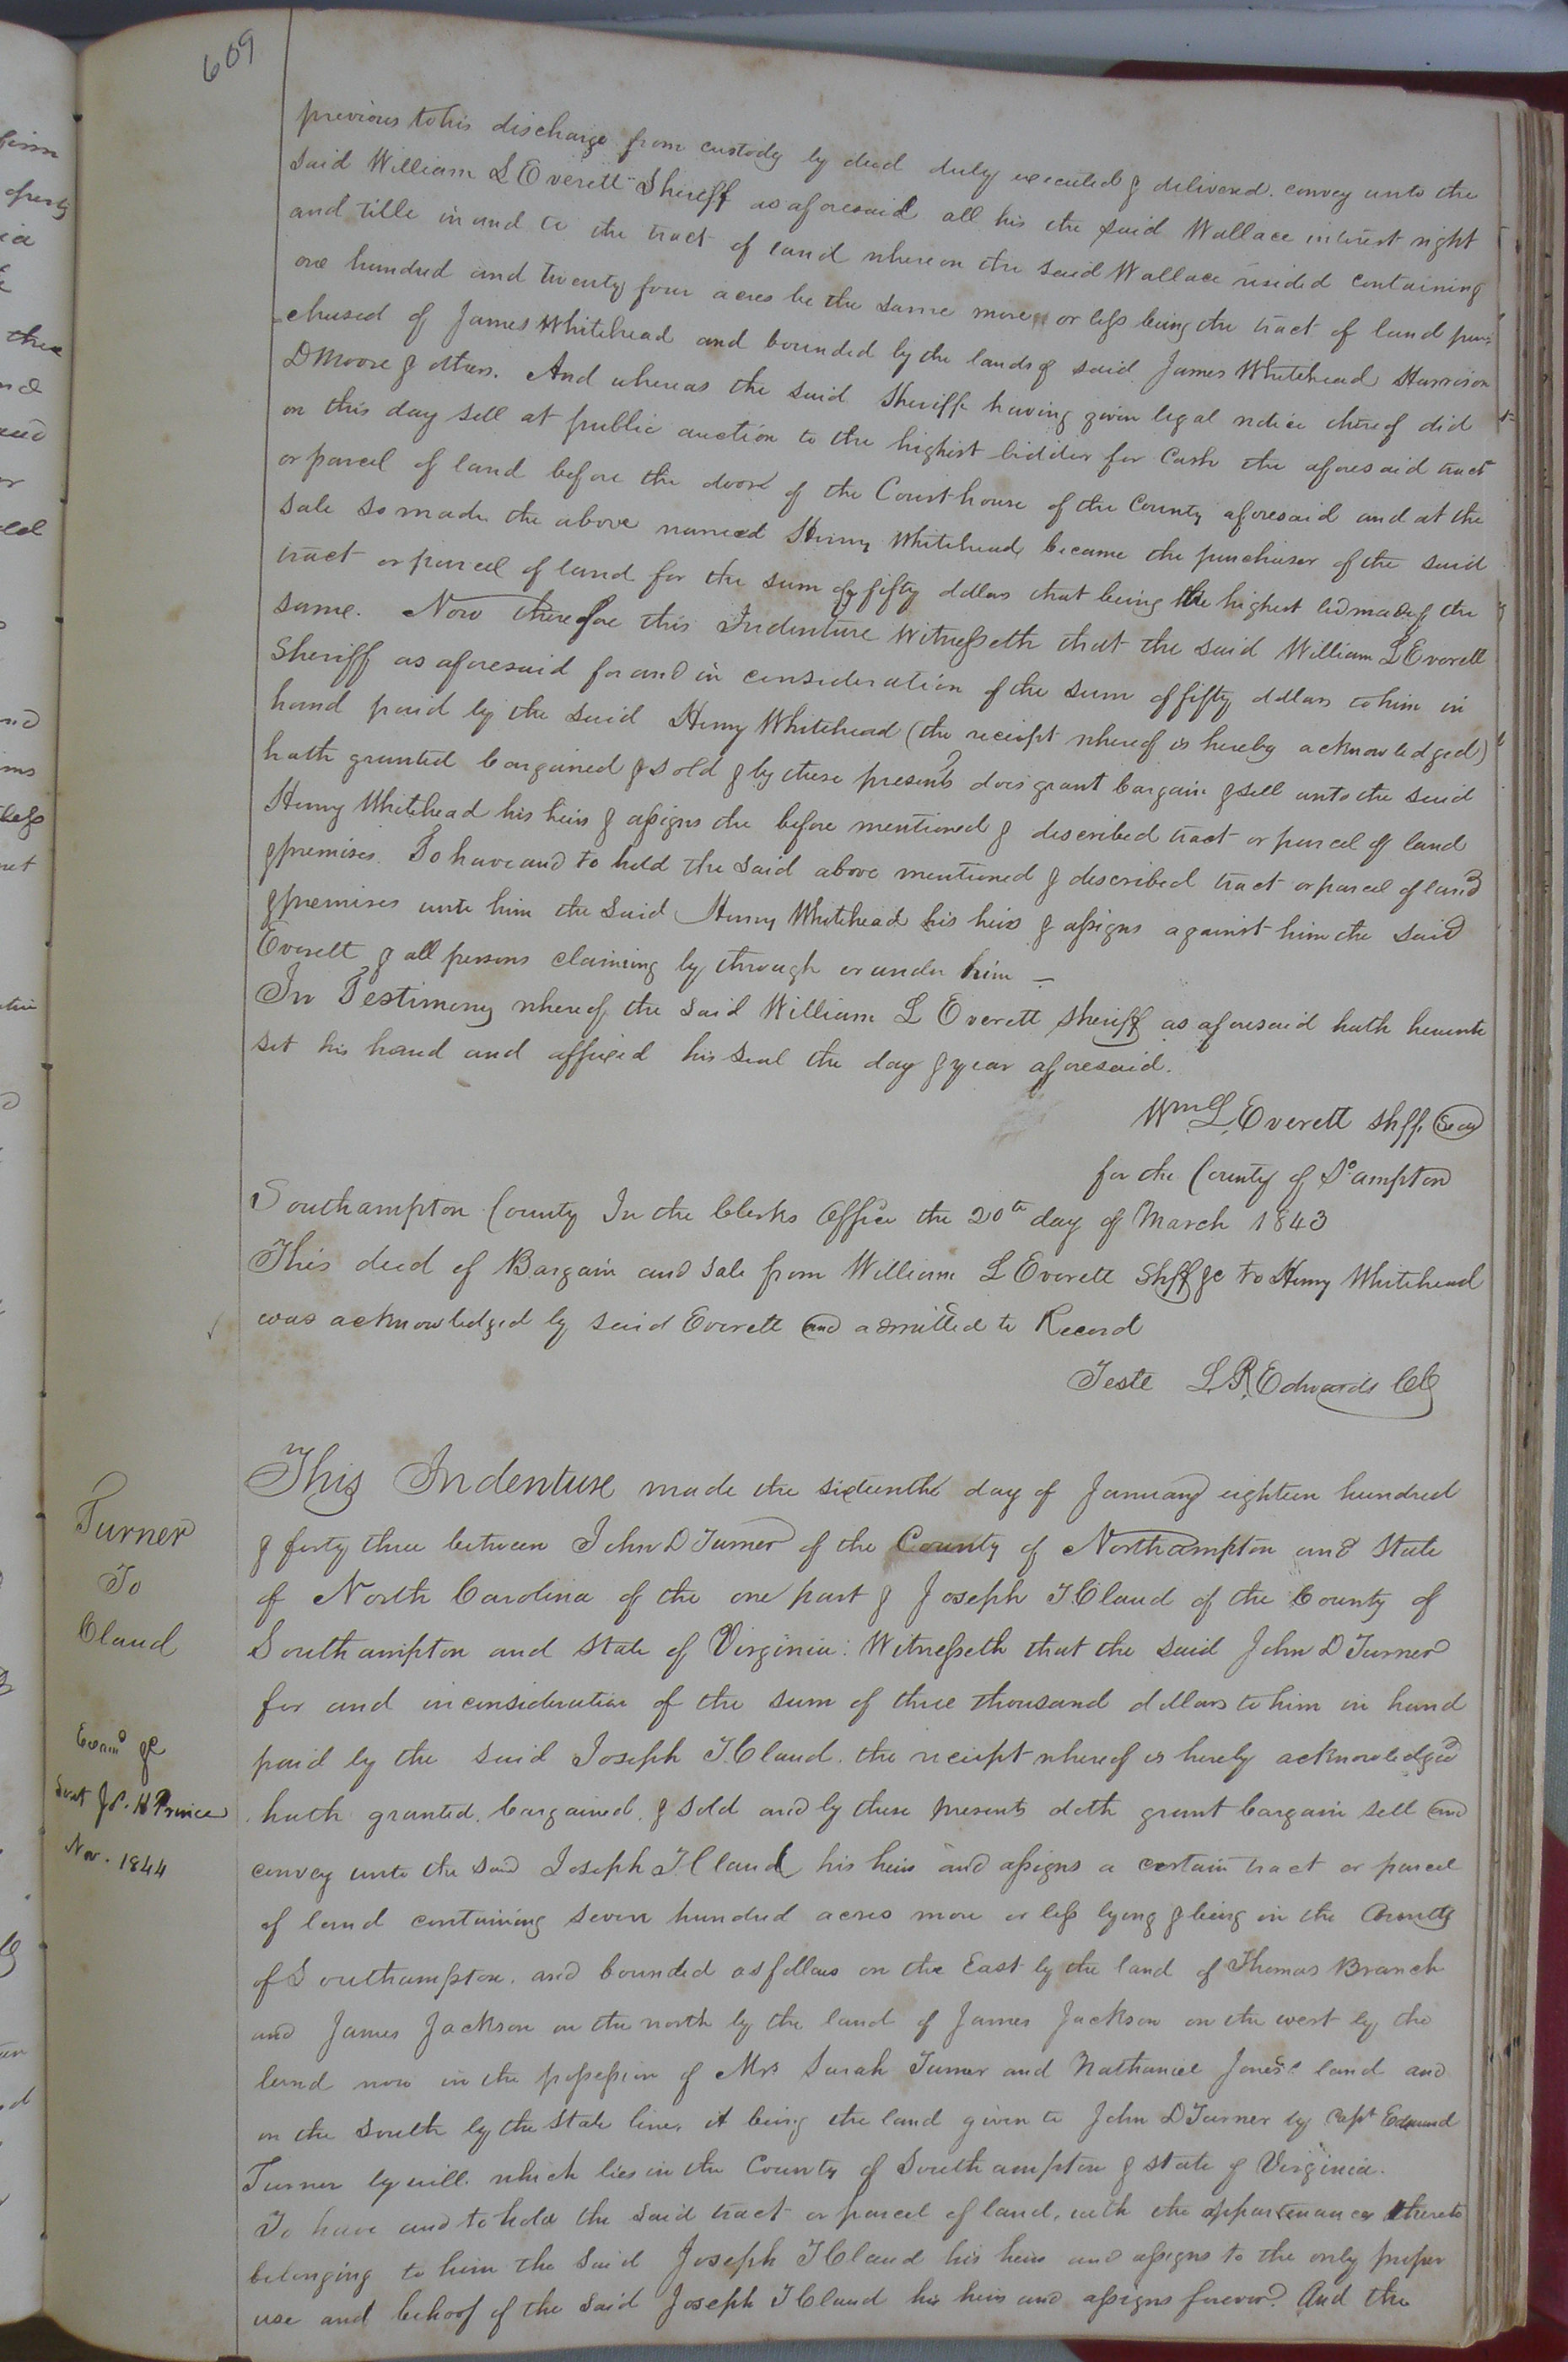 609
previous to his discharge from custody by deed duly executed & delivered. convey unto the
said William L Everett Sheriff as aforesaid all his the said Wallace interest right
and title in and to the tract of land whereon the said Wallace resided containing
one hundred and twenty four acres be the same more or less being the tract of land pur-
chased of James Whitehead and bounded by the lands of said James Whitehead Harrison
D Moore & others. And whereas the said Sheriff having given legal notice thereof did
on this day sell at public auction to the highest bidder for Cash the aforesaid tract
or parcel of land before the door of the Courthouse of the County aforesaid and at the
sale so made the above named Henry Whitehead became the purchaser of the said
tract or parcel of land for the sum of fifty dollars that being the highest bid made of the
same. Now therefore this Indenture Witnesseth that the said William L Everett
Sheriff as aforesaid for and in consideration of the sum of fifty dollars to him in
hand paid by the said Henry Whitehead (the receipt whereof is hereby acknowledged)
hath granted bargained & sold & by these presents does grant bargain & sell unto the said
Henry Whitehead his heirs & assigns the before mentioned & described tract or parcel of land
& premises. To have and to hold the said above mentioned & described tract or parcel of land
& premises unto him the said Henry Whitehead his heirs & assigns against him the said
Everett & all persons claiming by through or under him —
In Testimony whereof the said William L Everett Sheriff as aforesaid hath hereunto
set his hand and affixed his seal the day & year aforesaid.
Wm L. Everett Shff. Seal
for the County of So.ampton
Southampton County In the Clerks Office the 20th day of March 1843
This deed of Bargain and sale from William L Everett Shff &c to Henry Whitehead
was acknowledged by said Everett and admitted to Record
Teste L. R. Edwards CC
Turner
To
Claud
Examd &c
Sent J. H Prince
Nov. 1844
This Indenture made the sixteenth day of January eighteen hundred
& forty three between John D Turner of the County of Northampton and State
of North Carolina of the one part & Joseph T Claud of the County of
Southampton and State of Virginia: Witnesseth that the said John D Turner
for and in consideration of the sum of three thousand dollars to him in hand
paid by the said Joseph T. Claud. the receipt whereof is hereby acknowledged
hath granted. bargained. & sold and by these presents doth grant bargain sell and
convey unto the said Joseph T Claud his heirs and assigns a certain tract or parcel
of land containing seven hundred acres more or less lying & being in the County
of Southampton. and bounded as follows on the East by the land of Thomas Branch
and James Jackson on the north by the land of James Jackson on the west by the
land now in the possession of Mrs Sarah Turner and Nathaniel Jones's land and
on the south by the State line. it being the land given to John D Turner by Capt Edmund
Turner by will. which lies in the County of Southampton & State of Virginia.
To have and to hold the said tract or parcel of land, with the appurtenances thereto
belonging to him the said Joseph T Claud his heirs and assigns to the only proper
use and behoof of the said Joseph T Claud his heirs and assigns forever. And the